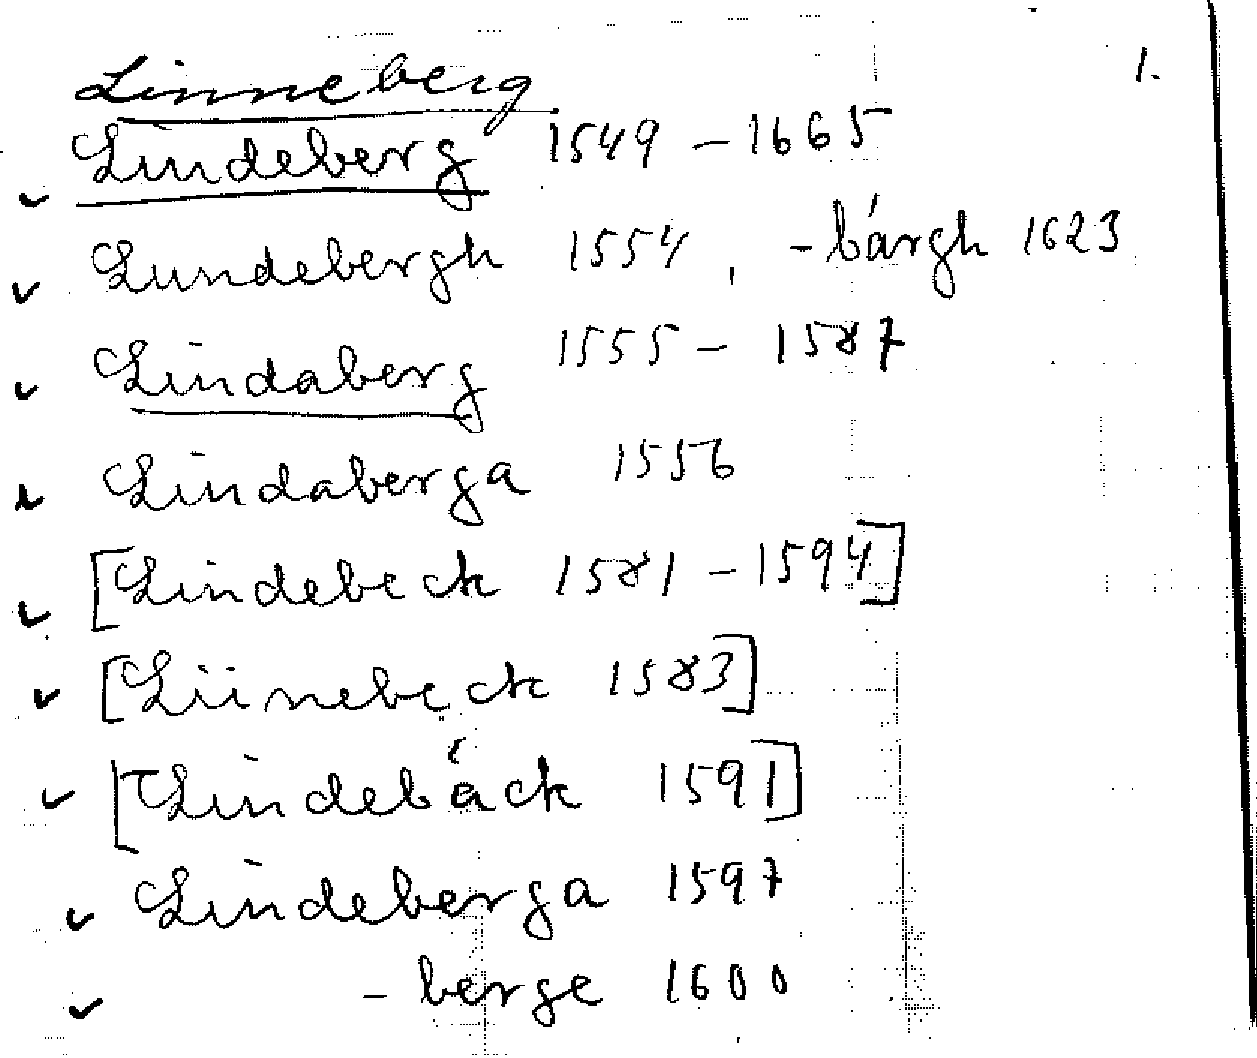 1.
Linneberg
Lindeberg 1549 – 1665
Lundebergh 1554, -bärgh 1623
Lindaberg 1555 – 1587
Lindaberga 1556
[Lindebeck 1581 – 1594]
[Liinebeck 1583]
[Lindebäck 1591]
Lindeberga 1597
- berge 1600